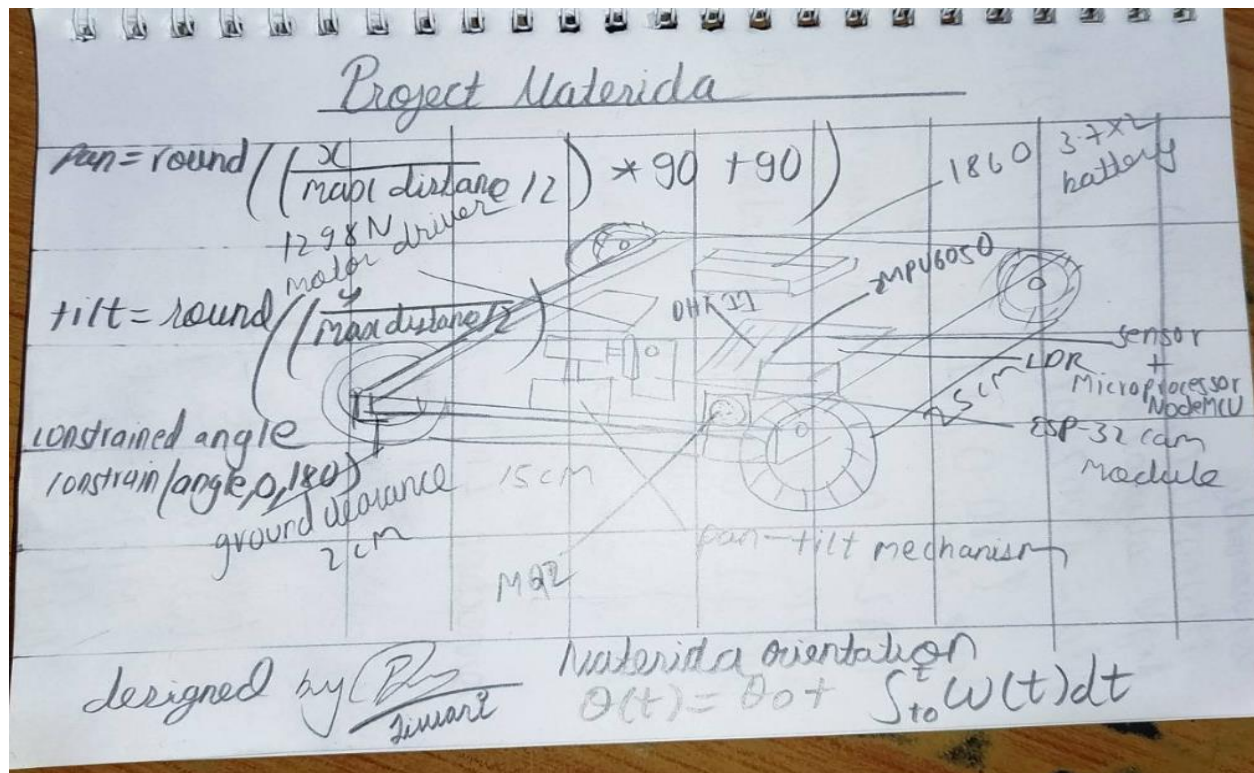 Project Materida
Pan = round((x / max distane / 2) * 90 + 90)
1298N
motor driver
1860
3.7x2
battery
MPU6050
tilt = round((y / max distane / 2)
DHT11
sensor
+
Microprocessor
NodeMCU
LDR
25cm
ESP-32 cam
Module
constrained angle
constrain(angle,0,180)
ground clearance
2cm
15cm
pan-tilt mechanism
MQ2
designed by
Tiwari
Materida orientation
θ(t) = θ0 + ∫t0^t ω(t)dt